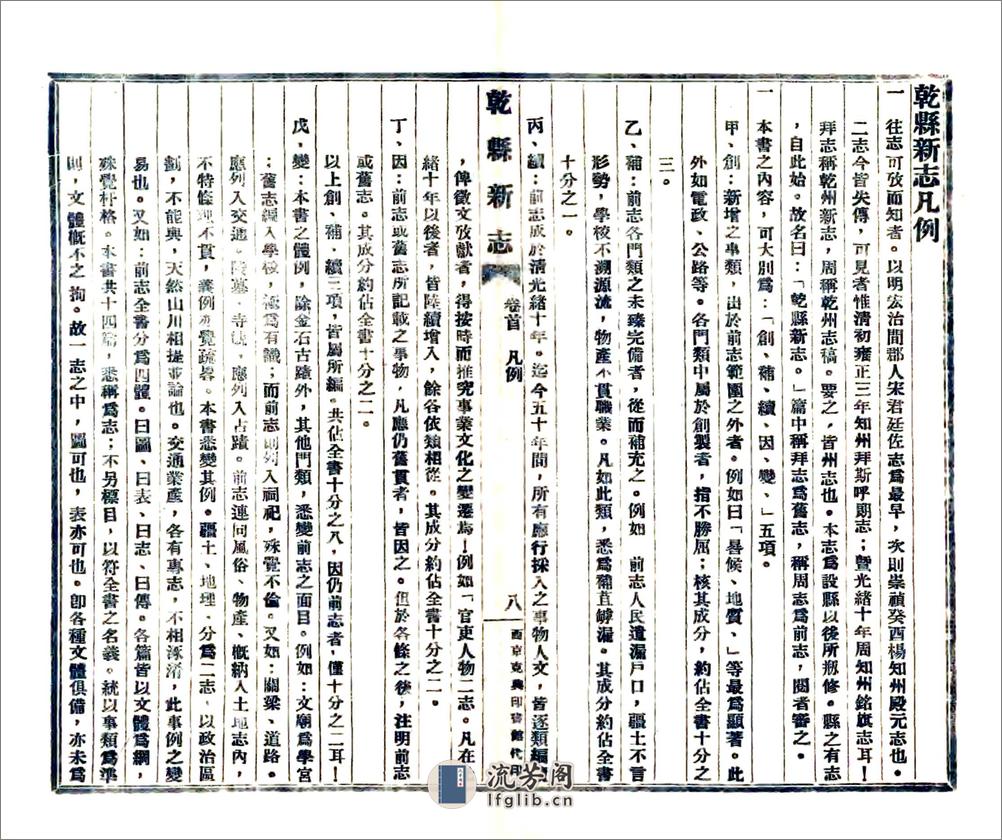 乾縣新志凡例
一 往志可攷而知者。以明宏治間郡人宋君廷佐志爲最早，次則崇禎癸酉楊知州殿元志也。
二志今皆失傳，可見者惟清初雍正三年知州拜斯呼朗志；暨光緒十年周知州銘旗志耳！
拜志稱乾州新志，周稱乾州志稿。要之，皆州志也。本志爲設縣以後所剏修。縣之有志
，自此始。故名曰：「乾縣新志。」篇中稱拜志爲舊志，稱周志爲前志，閱者審之。
一 本書之內容，可大別爲：「創、補、續、因、變、」五項。
甲、創：新增之事類，出於前志範圍之外者。例如曰「晷候、地質、」等最爲顯著。此
外如電政、公路等。各門類中屬於創製者，指不勝屈；核其成分，約佔全書十分之
三。
乙、補：前志各門類之未臻完備者，從而補充之。例如 前志人民遺漏戶口，疆土不言
形勢，學校不溯源流，物產不貫職業。凡如此類，悉爲補苴罅漏。其成分約佔全書
十分之一。
丙、續：前志成於清光緒十年。迄今五十年間，所有應行採入之事物人文，皆逐類編
乾縣新志 卷首 凡例 八 西京克興印書館代印
，俾徵文攷獻者，得按時而推究事業文化之變遷焉！例如「官吏人物二志。凡在
緒十年以後者，皆陸續增入，餘各依類相從。其成分約佔全書十分之二。
丁、因：前志或舊志所記載之事物，凡應仍舊貫者，皆因之。但於各條之後，注明前志
或舊志。其成分約佔全書十分之二。
以上創、補、續三項，皆屬所編。共佔全書十分之八，因仍前志者，僅十分之二耳！
戊、變：本書之體例，除金石古蹟外，其他門類，悉變前志之面目。例如：文廟爲學宮
；舊志經入學校，極爲有識；而前志則列入祠祀，殊覺不倫。又如：關梁、道路。
應列入交通。陵墓、寺觀，應列入古蹟。前志連同風俗、物產、概納入土地志內，
不特條理不貫，義例亦覺疏畧。本書悉變其例。疆土、地理、分爲二志、以政治區
劃，不能與，天然山川相提並論也。交通業產，各有專志，不相淆淆，此事例之變
易也。又如：前志全書分爲四體。曰圖、曰表、曰志、曰傳。各篇皆以文體爲綱，
殊覺杆格。本書共十四篇，悉稱爲志；不另標目，以符全書之名義。統以事類爲準
則，文體概不之拘。故一志之中，圖可也，表亦可也。卽各種文體俱備，亦未爲
流芳阁
lfglib.cn